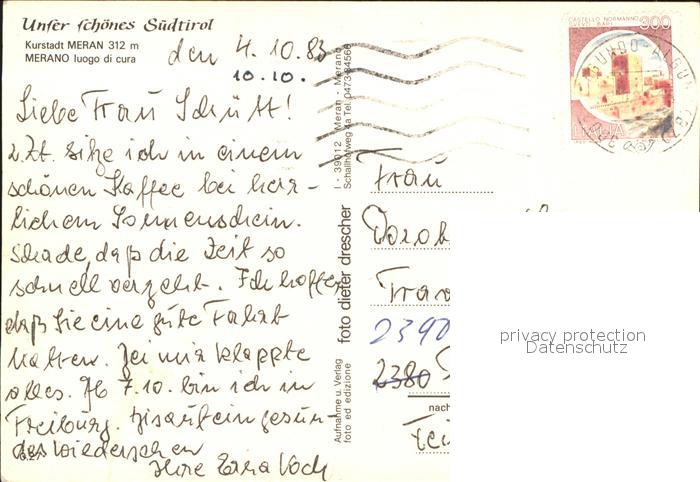 Unser schönes Südtirol
Kurstadt MERAN 312 m
MERANO luogo di cura
den 4.10.83
10.10.
Liebe Frau Schütt!
z.Zt. sitze ich in einem
schönen Kaffee bei herr-
lichem Sonnenschein.
Schade, daß die Zeit so
schnell vergeht. Ich hoffe,
daß Sie eine gute Fahrt
hatten. Bei mir klappte
alles. Ab 7.10. bin ich in
Freiburg. Bis auf ein gesun-
des Wiedersehen
Ihre Erna Koch
I - 39012 Meran - Merano
Schallhofweg 4a Tel. 0473-34566
foto dieter drescher
Aufnahme u. Verlag
foto ed edizione
CASTELLO NORMANNO
SVEVO BARI
300
ITALIA
Frau
Dorot
2390
2380
nach
privacy protection
Datenschutz